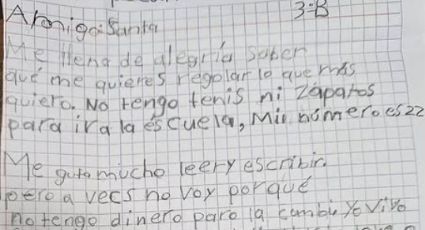 3-B
Amigo Santa
Me llena de alegría saber
que me quieres regalar lo que más
quiero. No tengo tenis ni zapatos
para ir a la escuela, Mi número es 22
Me guta mucho leer y escribir.
pero a vecs no voy porqué
no tengo dinero para la cambi y vivo